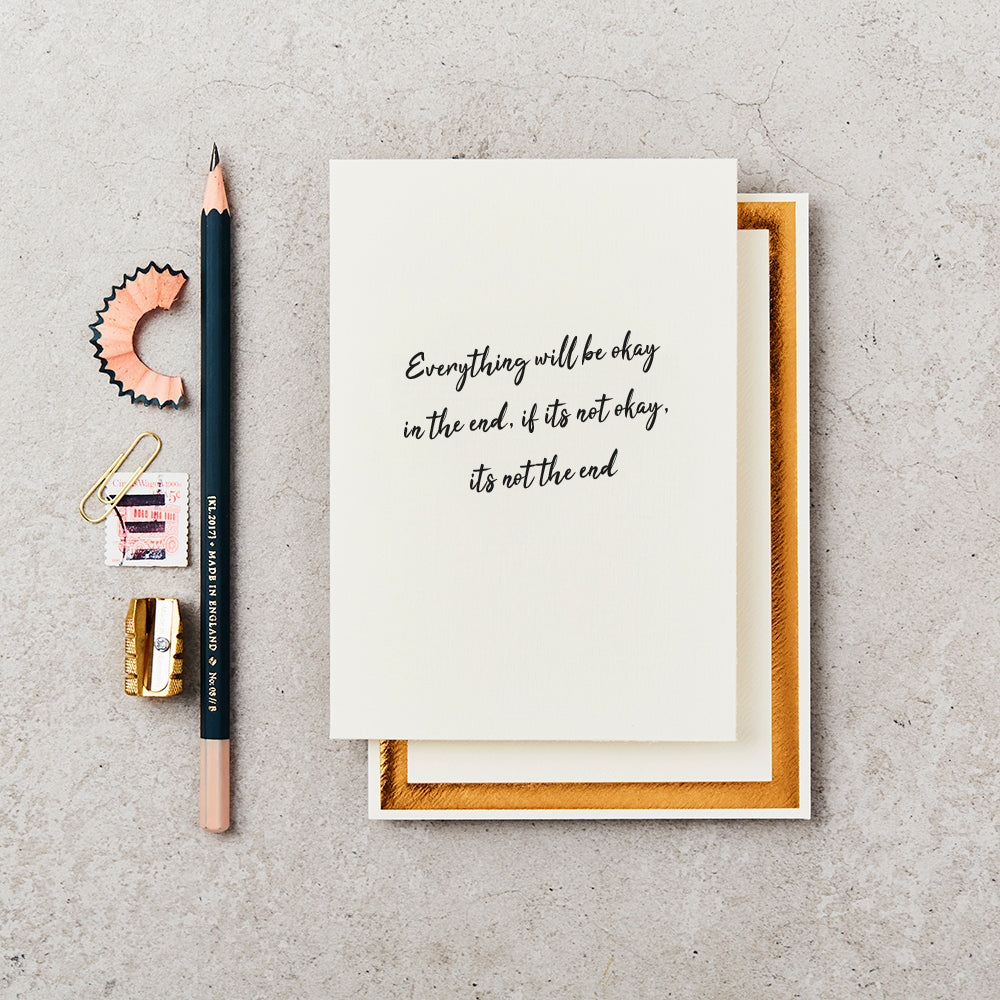 Everything will be okay
in the end, if its not okay,
its not the end
[KL.2017] • MADE IN ENGLAND ◈ No: 03 // B
1900s
5c